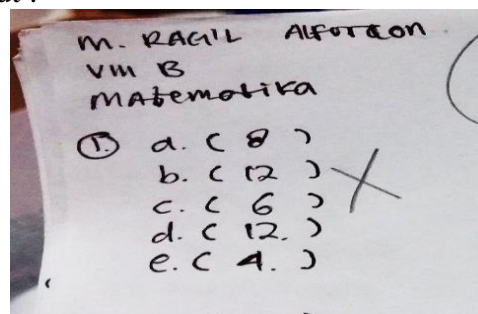 M. RAGIL ALFURQON
VIII B
MATEMATIKA
1. a. ( 8 )
b. ( 12 )
c. ( 6 )
d. ( 12. )
e. ( 4. )